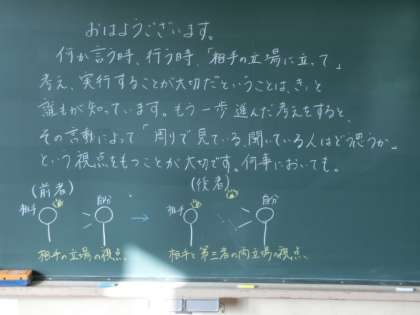 おはようございます。
何か言う時、行う時、「相手の立場に立って」
考え、実行することが大切だということは、きっと
誰もが知っています。もう一歩進んだ考えをすると、
その言動によって「周りで見ている、聞いている人はどう思うか」
という視点をもつことが大切です。何事においても。
(前者) (後者)
相手 自分 → 相手 自分
相手の立場の視点 相手と第三者の両立場の視点